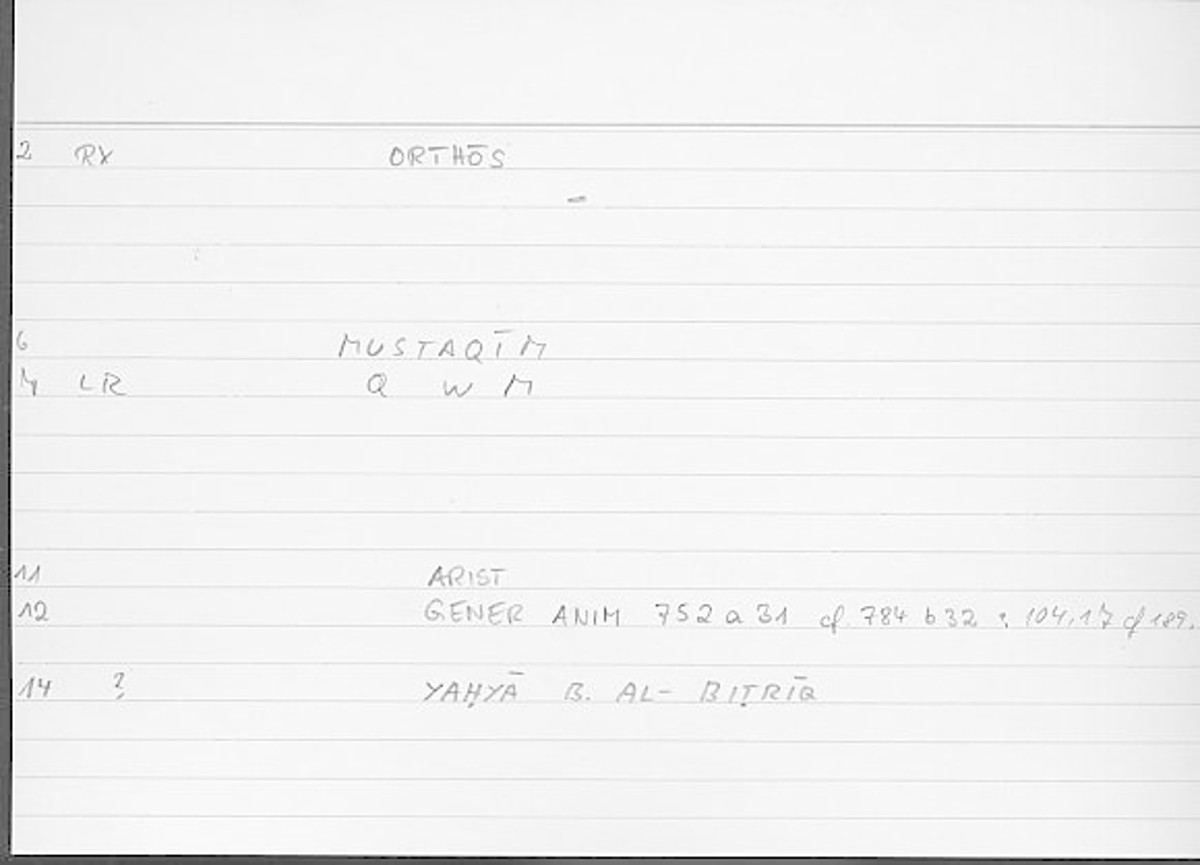 2 RX ORTHŌS
6 MUSTAQĪM
LR Q W M
11 ARIST
12 GENER ANIM 752 a 31 cf 784 b 32 : 104,17 cf 189.
14 ? YAḤYĀ B. AL- BIṬRĪQ